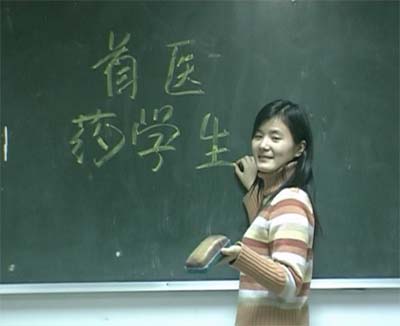 首医
药学生